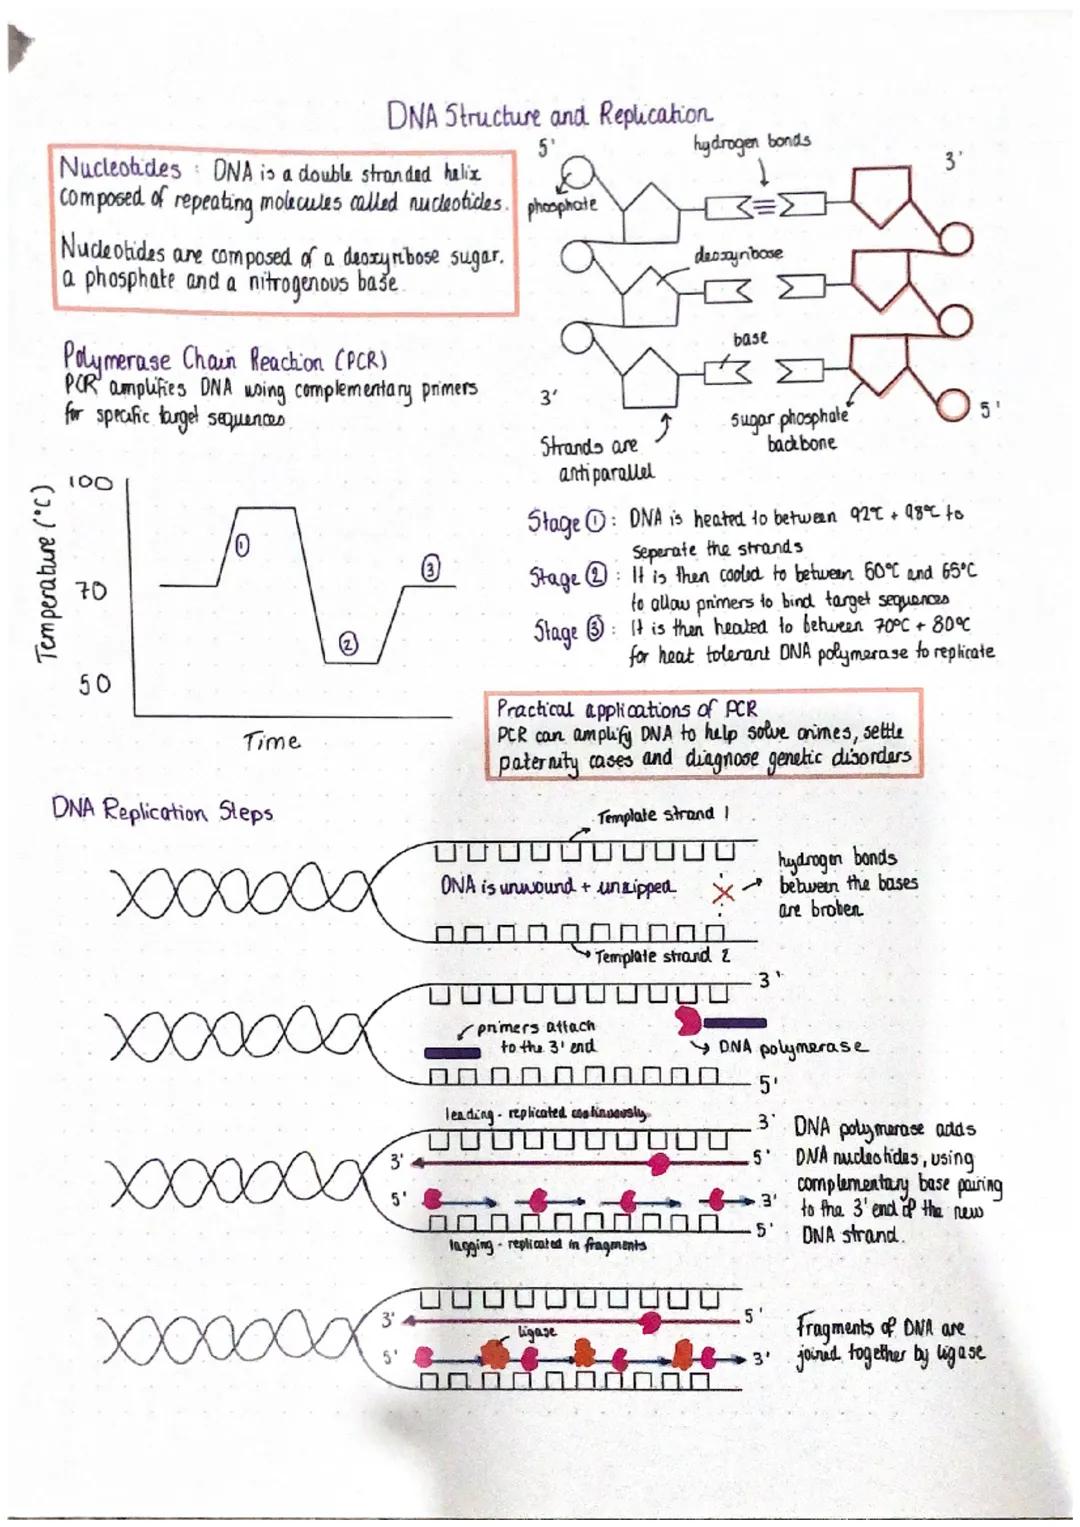 DNA Structure and Replication
Nucleotides : DNA is a double stranded helix
composed of repeating molecules called nucleotides.
Nucleotides are composed of a deoxyribose sugar,
a phosphate and a nitrogenous base.
5'
hydrogen bonds
3'
phosphate
deoxyribose
base
3'
5'
sugar phosphate
backbone
Strands are
antiparallel
Polymerase Chain Reaction (PCR)
PCR amplifies DNA using complementary primers
for specific target sequences.
Temperature (°C)
100
70
50
①
②
③
Time
Stage ① : DNA is heated to between 92°C + 98°C to
seperate the strands
Stage ② : It is then cooled to between 50°C and 65°C
to allow primers to bind target sequences
Stage ③ : It is then heated to between 70°C + 80°C
for heat tolerant DNA polymerase to replicate
Practical applications of PCR
PCR can amplify DNA to help solve crimes, settle
paternity cases and diagnose genetic disorders
DNA Replication Steps
Template strand 1
DNA is unwound + unzipped
hydrogen bonds
between the bases
are broken
Template strand 2
3'
primers attach
to the 3' end
DNA polymerase
5'
leading - replicated continuously
3'
3'
5'
5'
3'
5'
lagging - replicated in fragments
DNA polymerase adds
DNA nucleotides, using
complementary base pairing
to the 3' end of the new
DNA strand.
3'
5'
ligase
5'
3'
Fragments of DNA are
joined together by ligase